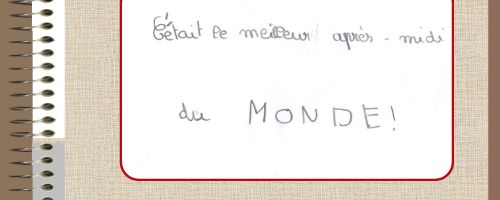 C'était le meilleur après-midi
du MONDE!